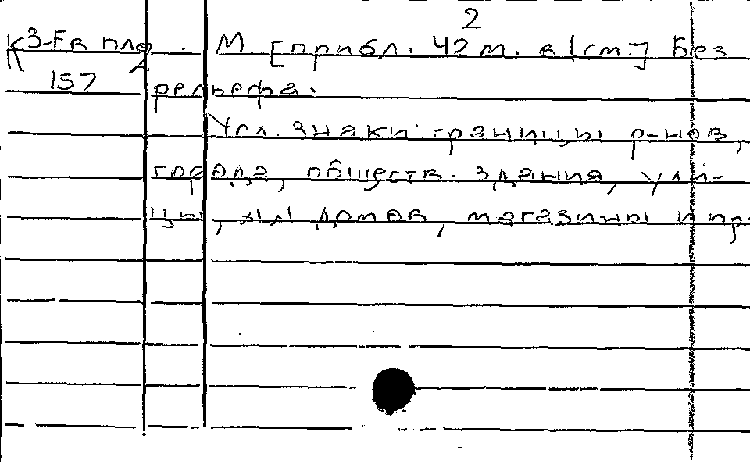 2
К3-Fв пло. М. [прибл. 42 м. в 1 см.] Без
157 рельефа.
Усл. знаки: границы р-нов,
города, обществ. здания, ули-
цы, №№ домов, магазины и пр